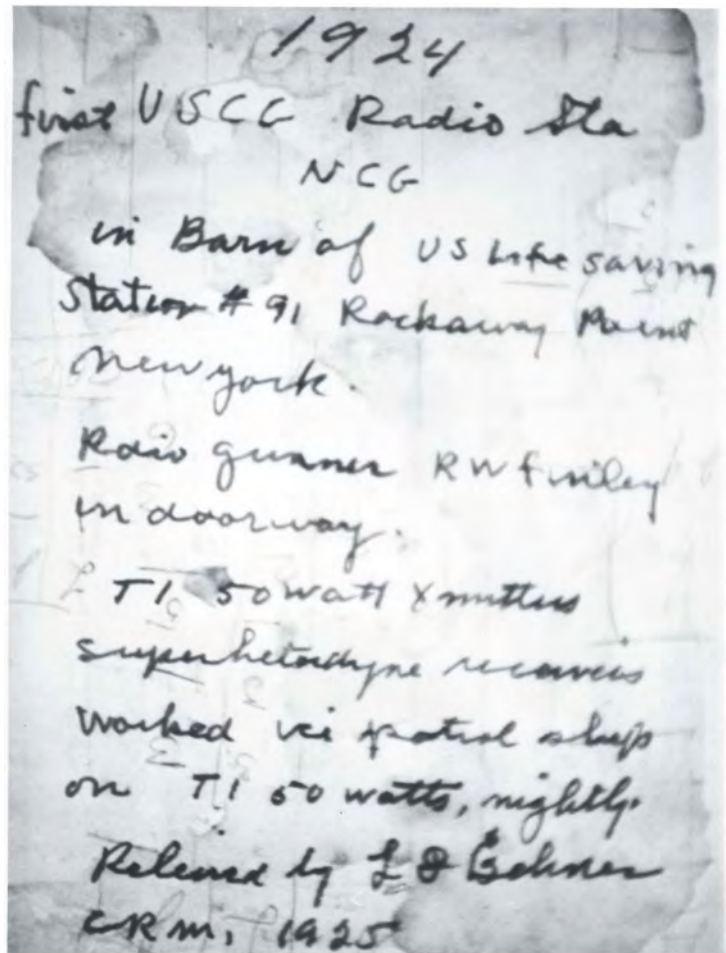 1924
first USCG Radio Sta
NCG
in Barn of US Life saving
Station # 91 Rockaway Point
New york.
Rdaio gunner RW Finley
in doorway.
T1 50 watt Xmitters
superhetodyne receivers
worked ice patrol ships
on T1 50 watts, nightly.
Relieved by L
CRM, 1925